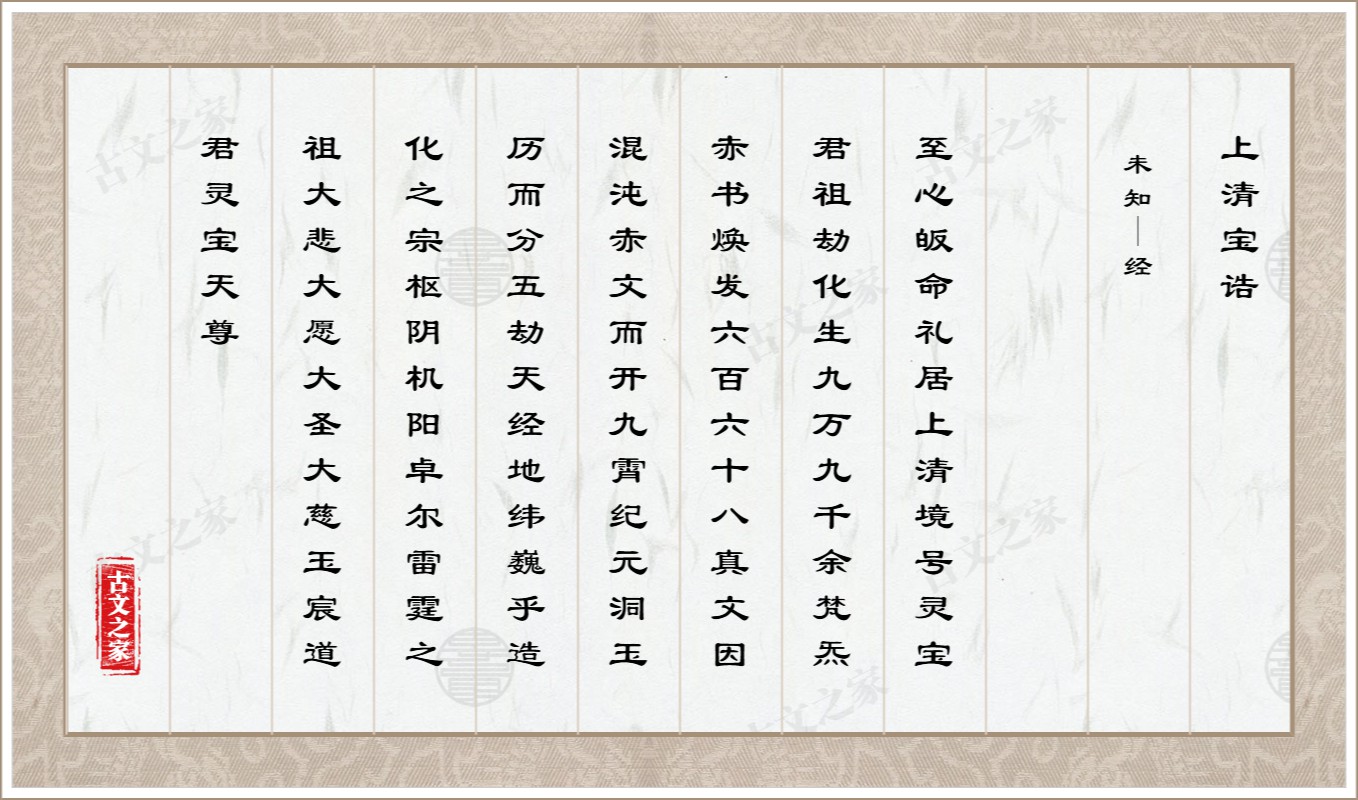 上清宝诰
未知｜经
至心皈命礼居上清境号灵宝
君祖劫化生九万九千余梵炁
赤书焕发六百六十八真文因
混沌赤文而开九霄纪元洞玉
历而分五劫天经地纬巍乎造
化之宗枢阴机阳卓尔雷霆之
祖大悲大愿大圣大慈玉宸道
君灵宝天尊
古文之家
古文之家
古文之家
古文之家
古文之家
古文之家
古文之家